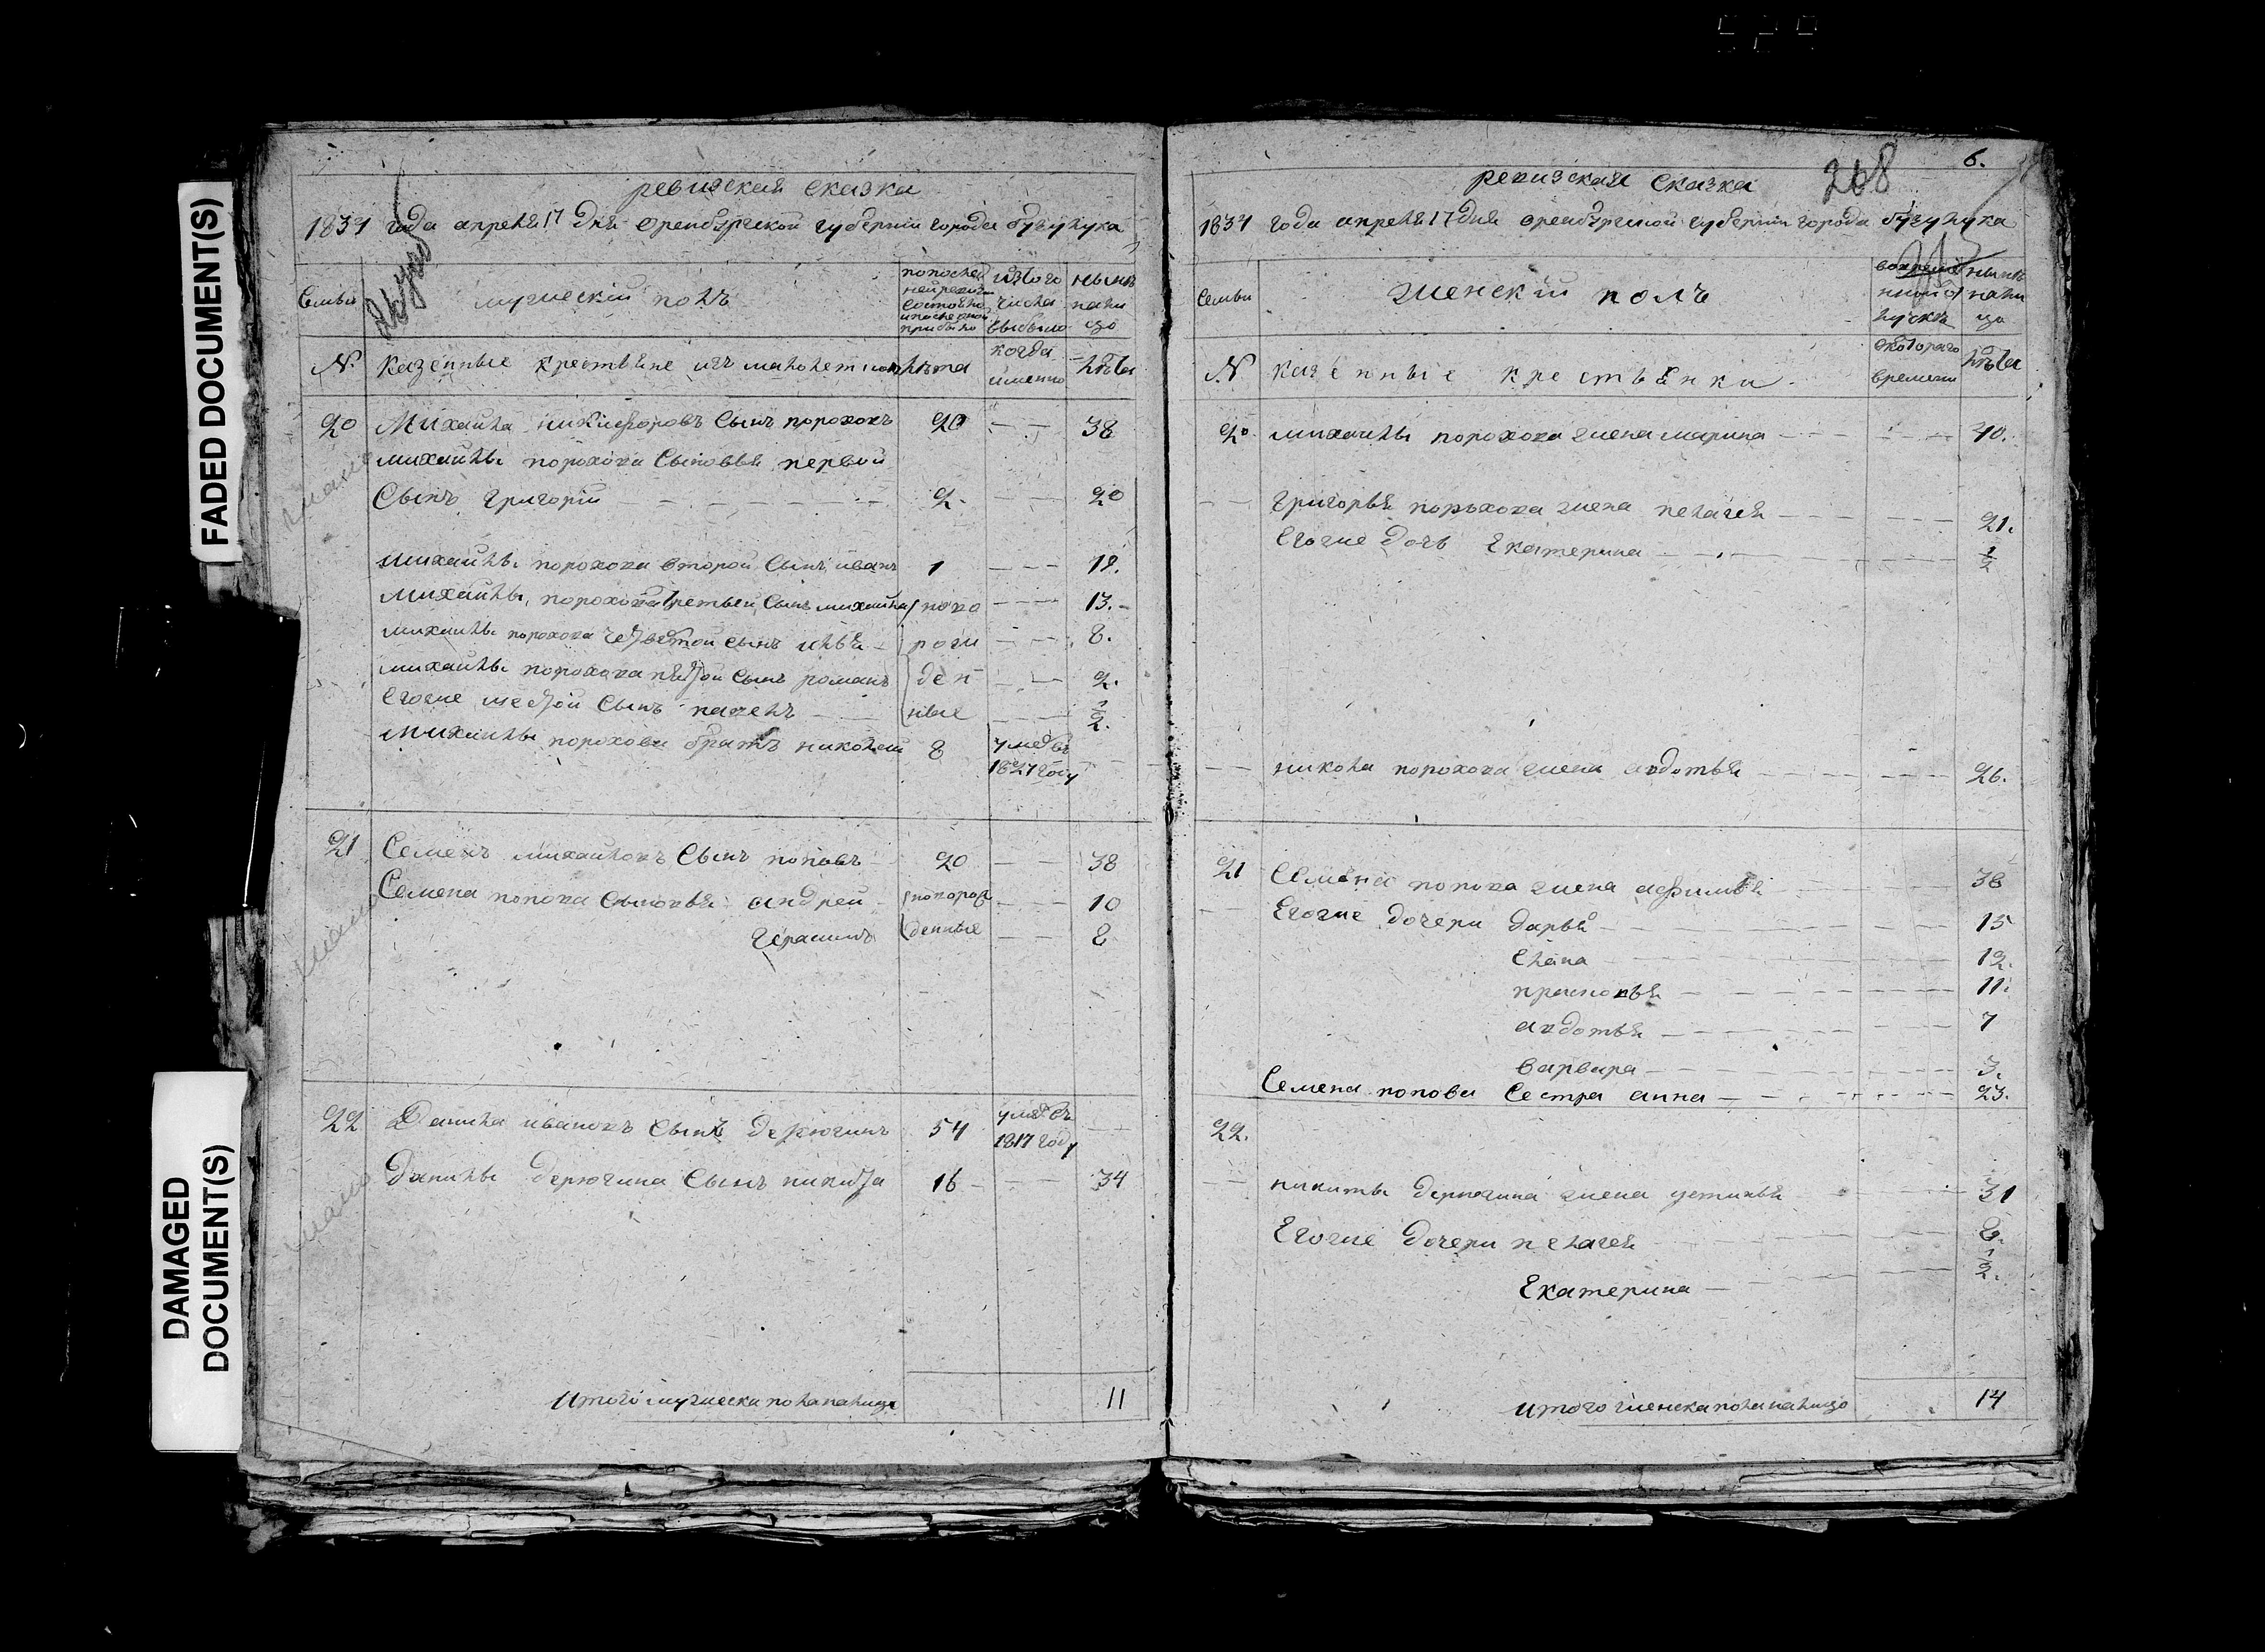 FADED DOCUMENT(S)
DAMAGED
DOCUMENT(S)
ревизская сказка
1834 года апреля 17 дня оренбургской губернии города бузулука
Семьи
мужескій полъ
по последней ревизіи состояло и после оной прибыло
изъ того числа выбыло
ныне на лицо
№
Казенные крестьяне изъ малолетковъ
лѣта
когда именно
лѣта
20 Михайла никифоровъ Сынъ пороховъ 20 — — 38
михайлы порохова Сыновья первой
Сынъ григорій — — — 2 — — 20
михайлы порохова второй Сынъ иванъ 1 — — 19.
михайлы порохова третьей Сынъ михайла ново — — 13.
михайлы порохова четвертой Сынъ илья рож — — 8.
михайлы порохова пятой Сынъ романъ ден — — 2.
Егоже шестой Сынъ павелъ ные — — 1/2.
михайлы порохова братъ николай 8 умре въ
1821 году
21 Семенъ михайловъ Сынъ поповъ 20 — — 38
Семена попова Сыновья андрей новорож — — 10
герасимъ денные — — 8
22 Данила ивановъ Сынъ дерюгинъ 54 умре въ — —
1817 году
Данилы дерюгина Сынъ никита 16 — — 34
Итого мужеска пола на лицо 11
6.
268
ревизская Сказка
1834 года апреля 17 дня оренбургской губерніи города бузулука
Семьи
женскій полъ
во временной отлучке
ныне на лицо
№
казенные крестьянки
с котораго времени
лѣта
20 михайлы порохова жена марина — — 40.
Григорья порохова жена пелагея — — 21.
Егоже дочь Екатерина — — 1/2
никола порохова жена авдотья — — 26.
21 Семена попова жена афимья — — 38
Егоже дочери дарья — — 15
Елена — — 12.
прасковья — — 11.
авдотья — — 7
варвара — — 3.
Семена попова Сестра анна — — 23.
22.
никиты дерюгина жена устинья — — 31
Егоже дочери пелагея — — 8.
Екатерина — — 1/2.
итого женска пола на лицо 14